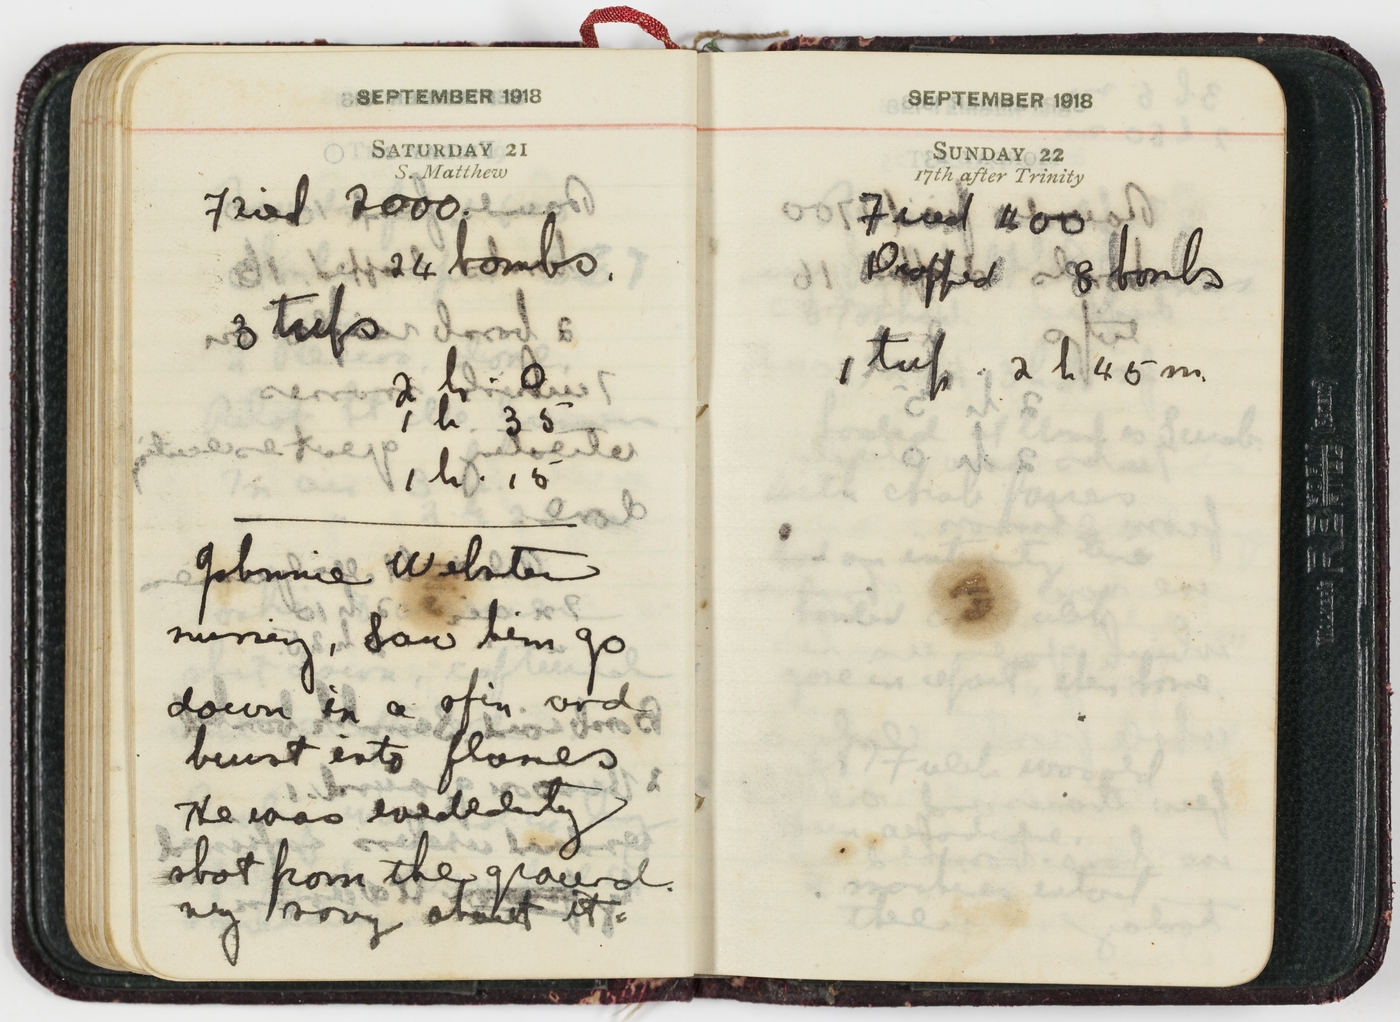 SEPTEMBER 1918
SATURDAY 21
S. Matthew
Fried 2000.
24 bombs.
3 trips
2 h. 0
1 h. 35
1 h. 15
Johnnie Webster
missing, Saw him go
down in a spin and
burst into flames
He was evedently
shot from the ground.
very sorry about it.
SEPTEMBER 1918
SUNDAY 22
17th after Trinity
Fried 400
Dropped 8 bombs
1 trip. 2 h 45 m.